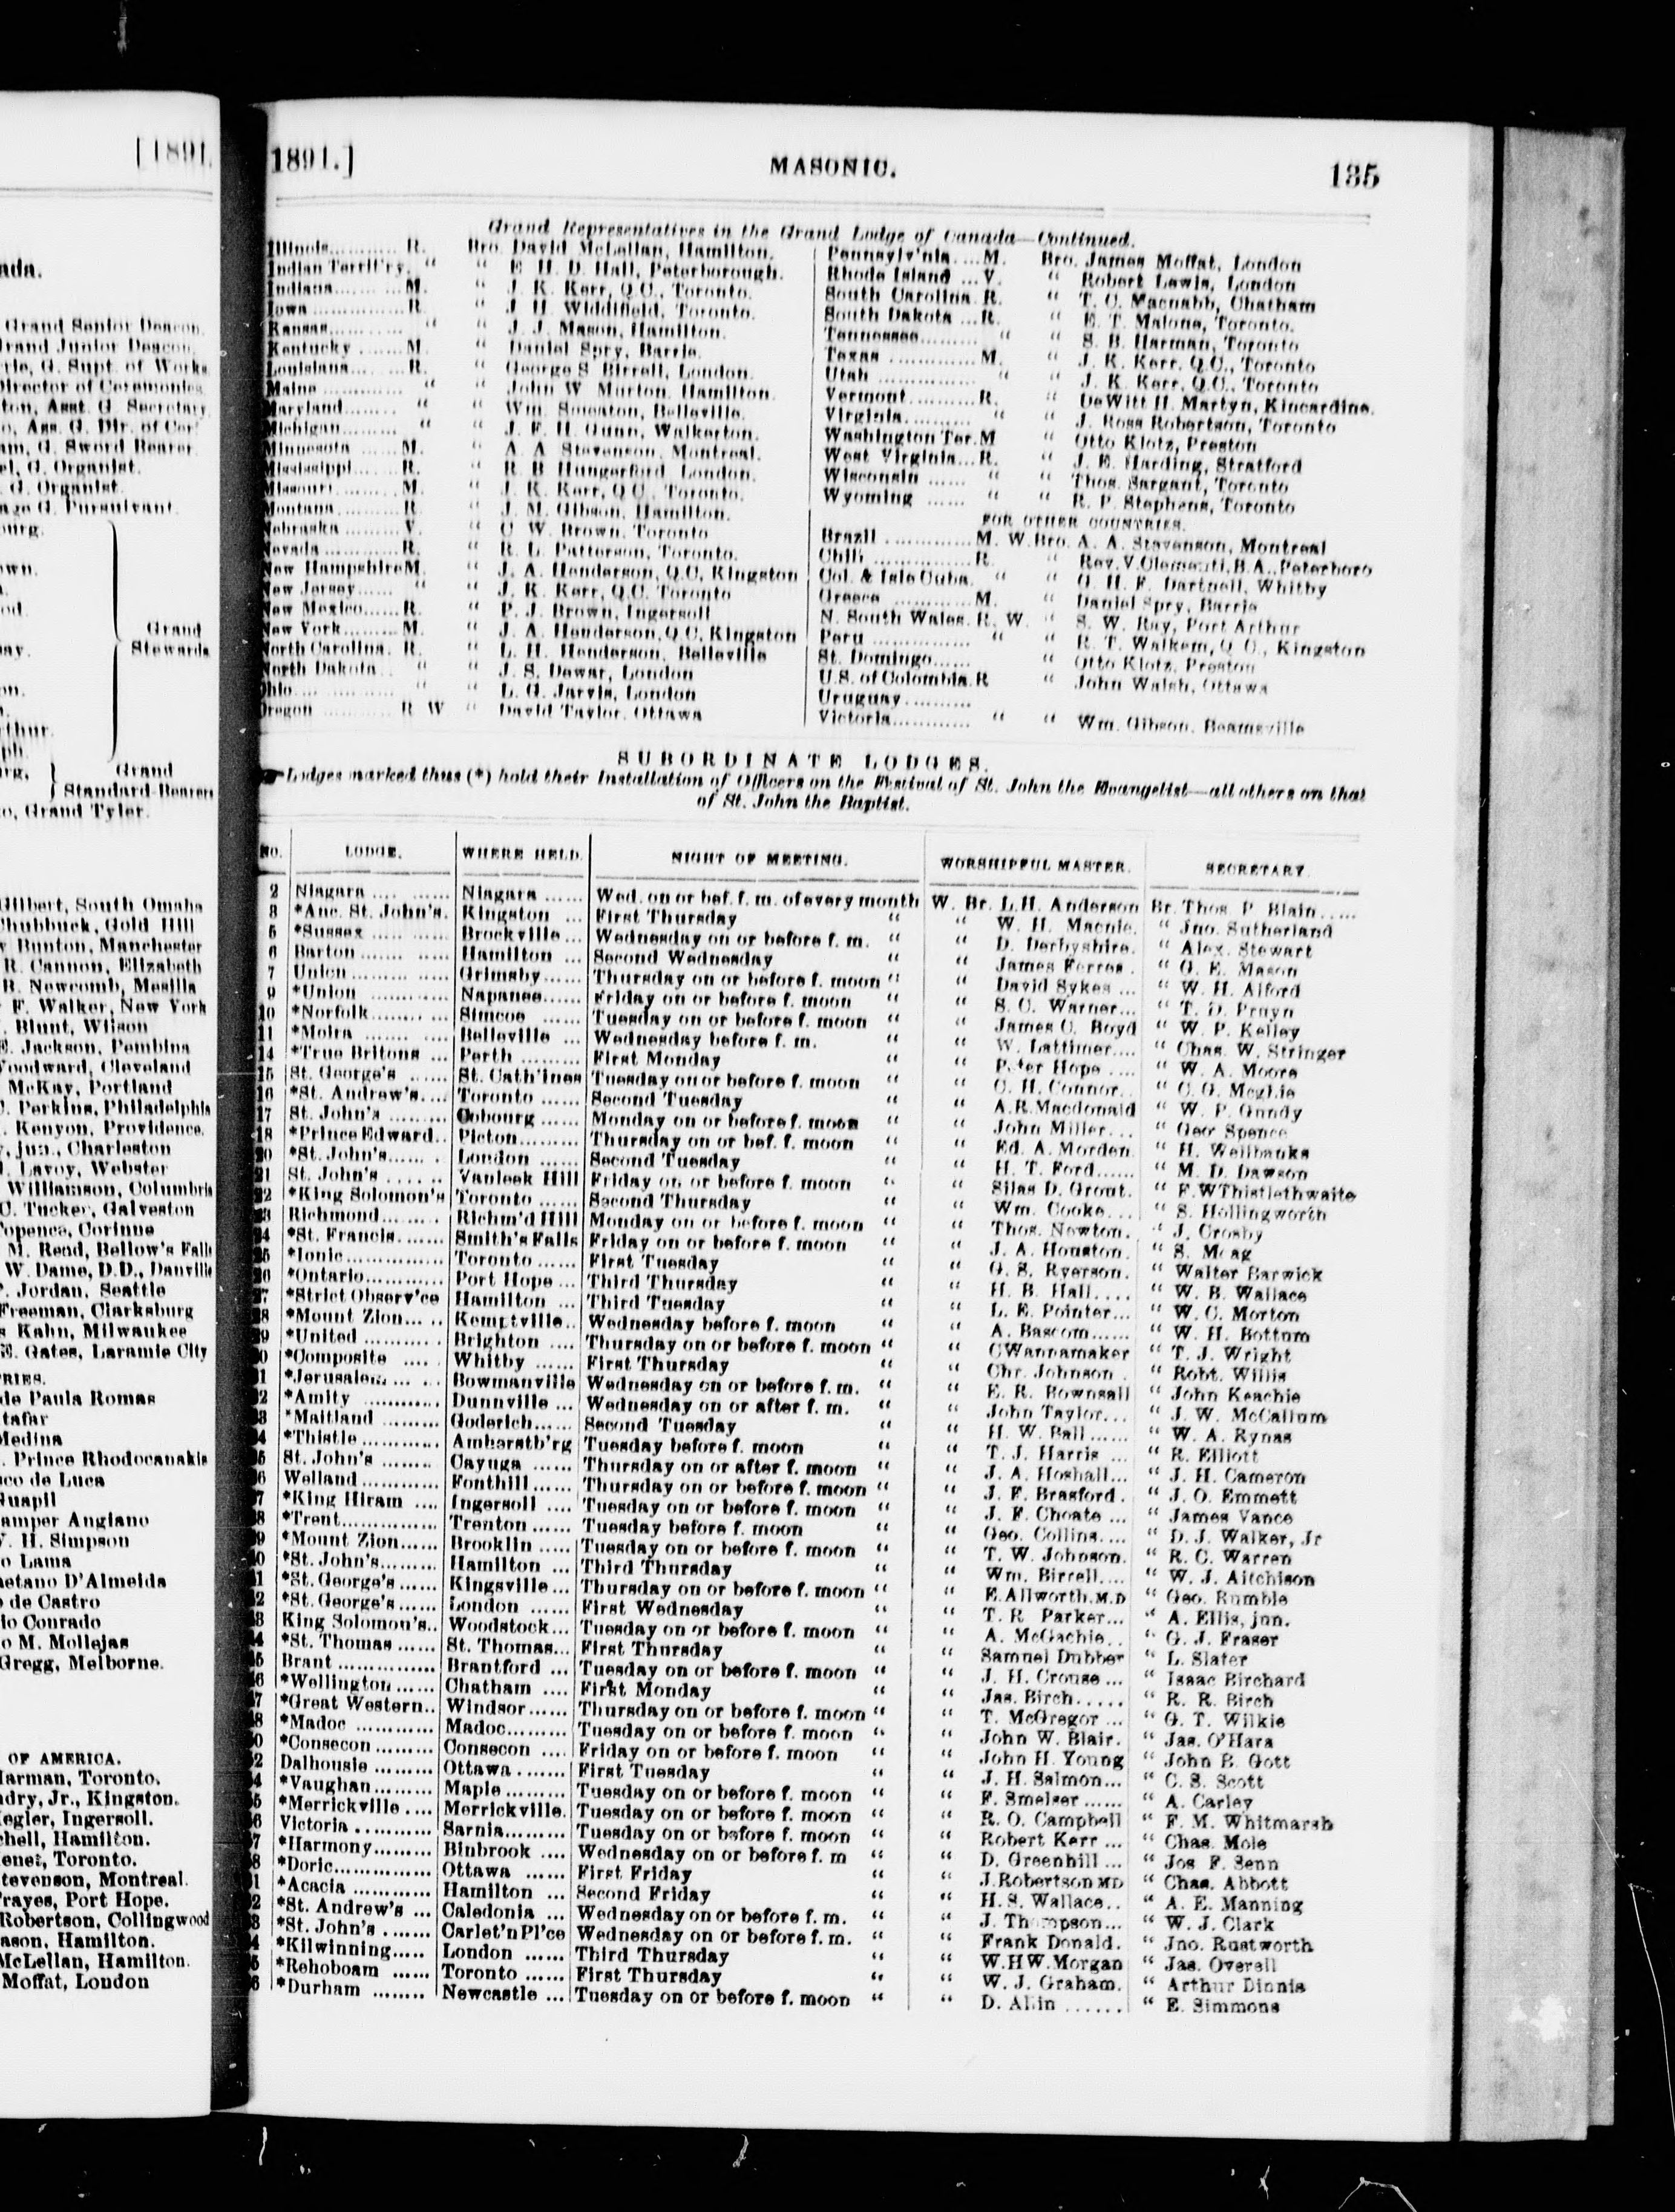 [1891.
ada.
Grand Senior Deacon.
Grand Junior Deacon.
G. Supt. of Works
Director of Ceremonies
ton, Asst. G. Secretary
o, Ass. G. Dir. of Cer
am, G. Sword Bearer
el, G. Organist.
G. Organist.
G. Pursuivant.
Grand
Stewards
Grand
Standard Bearers
o, Grand Tyler.
Gilbert, South Omaha
Chubbuck, Gold Hill
Bunton, Manchester
R. Cannon, Elizabeth
R. Newcomb, Mesilla
F. Walker, New York
Blunt, Wilson
E. Jackson, Pembina
Woodward, Cleveland
McKay, Portland
Perkins, Philadelphia
Kenyon, Providence.
, jun., Charleston
Lavoy, Webster
Williamson, Columbia
C. Tucker, Galveston
Copence, Corinne
M. Read, Bellow's Falls
W. Dame, D.D., Danville
Jordan, Seattle
Freeman, Clarksburg
s Kahn, Milwaukee
E. Gates, Laramie City
RIES.
de Paula Romas
tafar
Medina
. Prince Rhodocanakis
co de Luca
Guspil
amper Anglano
H. Simpson
o Lama
aetano D'Almeida
de Castro
lo Conrado
o M. Mollejas
Gregg, Melborne.
OF AMERICA.
Harman, Toronto.
dry, Jr., Kingston.
egler, Ingersoll.
chell, Hamilton.
enet, Toronto.
tevenson, Montreal.
rayes, Port Hope.
Robertson, Collingwood
ason, Hamilton.
McLellan, Hamilton.
Moffat, London
1891.] MASONIC. 135
Grand Representatives in the Grand Lodge of Canada—Continued.
Illinois........... R. Bro. David McLellan, Hamilton.
Indian Territ'ry. “ “ E. H. D. Hall, Peterborough.
Indiana......... M. “ J. K. Kerr, Q.C., Toronto.
Iowa.............. R. “ J. H. Widdifield, Toronto.
Kansas........... “ “ J. J. Mason, Hamilton.
Kentucky....... M. “ Daniel Spry, Barrie.
Louisiana....... R. “ George S Birrell, London.
Maine............ “ “ John W Murton, Hamilton.
Maryland........ “ “ Wm. Smeaton, Belleville.
Michigan......... “ “ J. F. H. Gunn, Walkerton.
Minnesota ...... M. “ A. A Stevenson, Montreal.
Mississippi...... R. “ R. B Hungerford, London.
Missouri......... M. “ J. K. Kerr, Q C., Toronto.
Montana ........ R “ J. M. Gibson, Hamilton.
Nebraska ....... V. “ C W. Brown, Toronto
Nevada........... R. “ R. L. Patterson, Toronto.
New Hampshire M. “ J. A. Henderson, Q.C, Kingston
New Jersey...... “ “ J. K. Kerr, Q.C. Toronto
New Mexico..... R. “ P. J. Brown, Ingersoll
New York......... M. “ J. A. Henderson, Q.C, Kingston
North Carolina. R. “ L. H. Henderson, Belleville
North Dakota.. “ “ J. S. Dewar, London
Ohio............... “ “ L. G. Jarvis, London
Oregon ............ R W “ David Taylor, Ottawa
Pennsylv'nia.... M. Bro. James Moffat, London
Rhode Island ... V. “ Robert Lewis, London
South Carolina. R. “ T. C. Macnabb, Chatham
South Dakota ... R. “ E. T. Malone, Toronto.
Tennessee......... “ “ S. B. Harman, Toronto
Texas ............. M. “ J. K. Kerr. Q.C., Toronto
Utah ............... “ “ J. K. Kerr, Q.C., Toronto
Vermont.......... R. “ DeWitt H. Martyn, Kincardine.
Virginia.......... “ “ J. Ross Robertson, Toronto
Washington Ter. M “ Otto Klotz, Preston
West Virginia... R. “ J. E. Harding, Stratford
Wisconsin ...... “ “ Thos. Sargant, Toronto
Wyoming ...... “ “ R. P. Stephens, Toronto
FOR OTHER COUNTRIES.
Brazil ............. M. W. Bro. A. A. Stevenson, Montreal
Chili ............... R. “ Rev. V. Clementi, B.A., Peterboro
Col. & Isle Cuba. “ “ G. H. F. Dartnell, Whitby
Greece ............ M. “ Daniel Spry, Barrie
N. South Wales. R. W. “ S. W. Ray, Port Arthur
Peru ............... “ “ R. T. Walkem, Q C., Kingston
St. Domingo...... “ Otto Klotz, Preston
U.S. of Colombia. R “ John Walsh, Ottawa
Uruguay..........
Victoria............ “ “ Wm. Gibson, Beamsville
SUBORDINATE LODGES.
Lodges marked thus (*) hold their Installation of Officers on the Festival of St. John the Evangelist—all others on that
of St. John the Baptist.
NO. LODGE. WHERE HELD. NIGHT OF MEETING. WORSHIPFUL MASTER. SECRETARY
2 Niagara .... ...... Niagara ...... Wed. on or bef. f. m. of every month W. Br. L.H. Anderson Br. Thos. P Blain......
3 *Anc. St. John's. Kingston ... First Thursday “ “ W. H. Macnie. “ Jno. Sutherland
5 *Sussex ........... Brockville... Wednesday on or before f. m. “ “ D. Derbyshire. “ Alex. Stewart
6 Barton ........... Hamilton ... Second Wednesday “ “ James Ferres . “ G. E. Mason
7 Union ............. Grimsby...... Thursday on or before f. moon “ “ David Sykes ... “ W. H. Alford
9 *Union ............ Napanee...... Friday on or before f. moon “ “ S. C. Warner... “ T. D. Pruyn
10 *Norfolk.......... Simcoe ...... Tuesday on or before f. moon “ “ James C. Boyd “ W. P. Kelley
11 *Moira ............ Belleville ... Wednesday before f. m. “ “ W. Lattimer.... “ Chas. W. Stringer
14 *True Britons ... Perth ......... First Monday “ “ Peter Hope .... “ W. A. Moore
15 St. George's ...... St. Cath'ines Tuesday on or before f. moon “ “ C. H. Connor.. “ C. G. McGhie
16 *St. Andrew's.... Toronto ...... Second Tuesday “ “ A.R. Macdonald “ W. P. Gundy
17 St. John's ........ Cobourg ...... Monday on or before f. moon “ “ John Miller... “ Geo Spence
18 *Prince Edward.. Picton......... Thursday on or bef. f. moon “ “ Ed. A. Morden. “ H. Wellbanks
20 *St. John's....... London ...... Second Tuesday “ “ H. T. Ford...... “ M. D. Dawson
21 St. John's ...... Vanleek Hill Friday on or before f. moon “ “ Silas D. Grout. “ F. W Thistlethwaite
22 *King Solomon's Toronto ...... Second Thursday “ “ Wm. Cooke.... “ S. Hollingworth
23 Richmond......... Richm'd Hill Monday on or before f. moon “ “ Thos. Newton. “ J. Crosby
24 *St. Francis....... Smith's Falls Friday on or before f. moon “ “ J. A. Houston. “ S.
25 *Ionic.............. Toronto ...... First Tuesday “ “ G. S. Ryerson. “ Walter Barwick
26 *Ontario........... Port Hope ... Third Thursday “ “ H. B. Hall.... “ W. B. Wallace
27 *Strict Observ'ce Hamilton ... Third Tuesday “ “ L. E. Pointer... “ W. C. Morton
28 *Mount Zion.... Kemptville.. Wednesday before f. moon “ “ A. Bascom...... “ W. H. Bottum
29 *United ........... Brighton .... Thursday on or before f. moon “ “ C Wannamaker “ T. J. Wright
0 *Composite .... Whitby ...... First Thursday “ “ Chr. Johnson . “ Robt. Willis
1 *Jerusalem...... Bowmanville Wednesday on or before f. m. “ “ E. R. Bownsall “ John Keachie
2 *Amity ........... Dunnville ... Wednesday on or after f. m. “ “ John Taylor... “ J. W. McCallum
3 *Maitland ......... Goderich...... Second Tuesday “ “ H. W. Ball...... “ W. A. Rynas
4 *Thistle ............ Amherstb'rg Tuesday before f. moon “ “ T. J. Harris ... “ R. Elliott
5 St. John's ........ Cayuga ...... Thursday on or after f. moon “ “ J. A. Hoshall... “ J. H. Cameron
6 Welland ............ Fonthill...... Thursday on or before f. moon “ “ J. F. Brasford. “ J. O. Emmett
7 *King Hiram .... Ingersoll .... Tuesday on or before f. moon “ “ J. F. Choate ... “ James Vance
8 *Trent............... Trenton ...... Tuesday before f. moon “ “ Geo. Collins.... “ D. J. Walker, Jr
9 *Mount Zion...... Brooklin ..... Tuesday on or before f. moon “ “ T. W. Johnson. “ R. C. Warren
0 *St. John's......... Hamilton ... Third Thursday “ “ Wm. Birrell.... “ W. J. Aitchison
1 *St. George's...... Kingsville... Thursday on or before f. moon “ “ E. Allworth, M.D “ Geo. Rumble
2 *St. George's...... London ...... First Wednesday “ “ T. R Parker... “ A. Ellis, jun.
43 King Solomon's.. Woodstock... Tuesday on or before f. moon “ “ A. McGachie.. “ G. J. Fraser
4 *St. Thomas ...... St. Thomas... First Thursday “ “ Samuel Dubber “ L. Slater
5 Brant ............... Brantford ... Tuesday on or before f. moon “ “ J. H. Crouse ... “ Isaac Birchard
6 *Wellington ...... Chatham .... First Monday “ “ Jas. Birch..... “ R. R. Birch
7 *Great Western.. Windsor...... Thursday on or before f. moon “ “ T. McGregor ... “ G. T. Wilkie
8 *Madoc ............ Madoc......... Tuesday on or before f. moon “ “ John W. Blair. “ Jas. O'Hara
0 *Consecon ......... Consecon .... Friday on or before f. moon “ “ John H. Young “ John B. Gott
2 Dalhousie ......... Ottawa....... First Tuesday “ “ J. H. Salmon... “ C. S. Scott
4 *Vaughan......... Maple ......... Tuesday on or before f. moon “ “ F. Smelser ...... “ A. Carley
5 *Merrickville.... Merrickville. Tuesday on or before f. moon “ “ R. O. Campbell “ F. M. Whitmarsh
6 Victoria ........... Sarnia......... Tuesday on or before f. moon “ “ Robert Kerr ... “ Chas. Mole
7 *Harmony......... Binbrook .... Wednesday on or before f. m “ “ D. Greenhill ... “ Jos F. Senn
8 *Doric............... Ottawa ...... First Friday “ “ J. Robertson MD “ Chas. Abbott
1 *Acacia ............ Hamilton ... Second Friday “ “ H. S. Wallace.. “ A. E. Manning
2 *St. Andrew's ... Caledonia ... Wednesday on or before f. m. “ “ J. Thompson... “ W. J. Clark
3 *St. John's ....... Carlet'n Pl'ce Wednesday on or before f. m. “ “ Frank Donald. “ Jno. Rustworth
4 *Kilwinning..... London ...... Third Thursday “ “ W.H W. Morgan “ Jas. Overell
5 *Rehoboam ...... Toronto ...... First Thursday “ “ W. J. Graham. “ Arthur Dinnis
6 *Durham ........ Newcastle ... Tuesday on or before f. moon “ “ D. Allin ...... “ E. Simmons